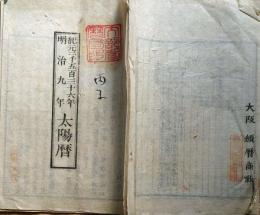 大阪 頒暦商社
丙子
紀元二千五百三十六年
明治九年
太陽暦